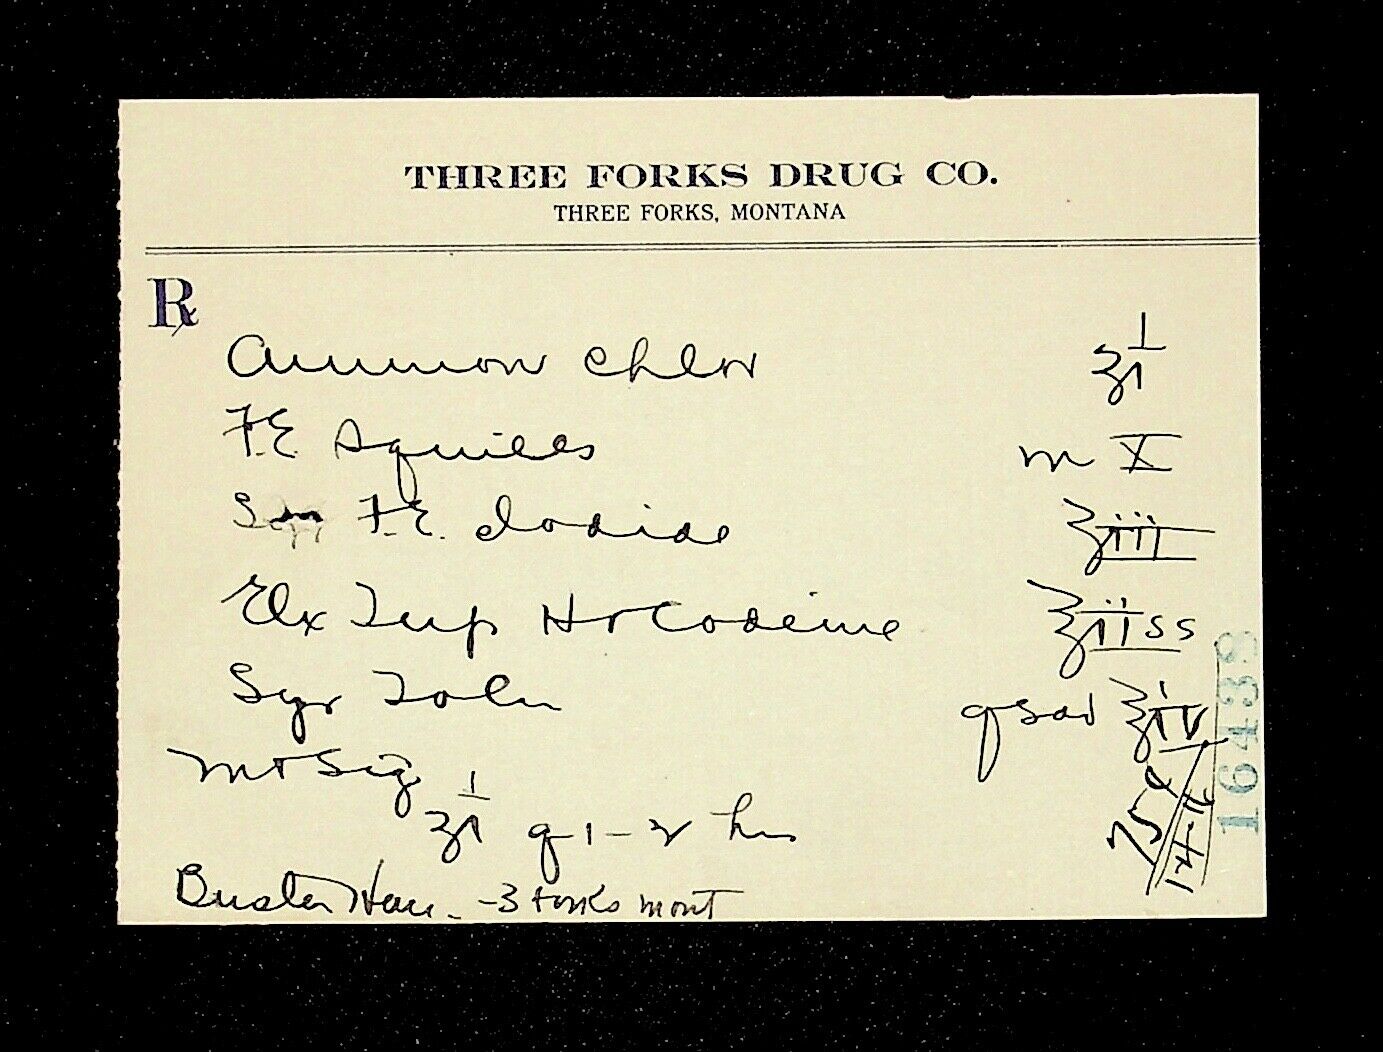 THREE FORKS DRUG CO.
THREE FORKS, MONTANA
℞
Ammon Chlor ʒi
F.E. Squills m X
Syr F.E. Iodide ʒiii
Elx Terp Hr Codeine ʒiiss
Syr Tolu qsad ʒiv
M + Sig
ʒi q 1-2 hrs
75¢
16438
Buster - 3 Forks Mont